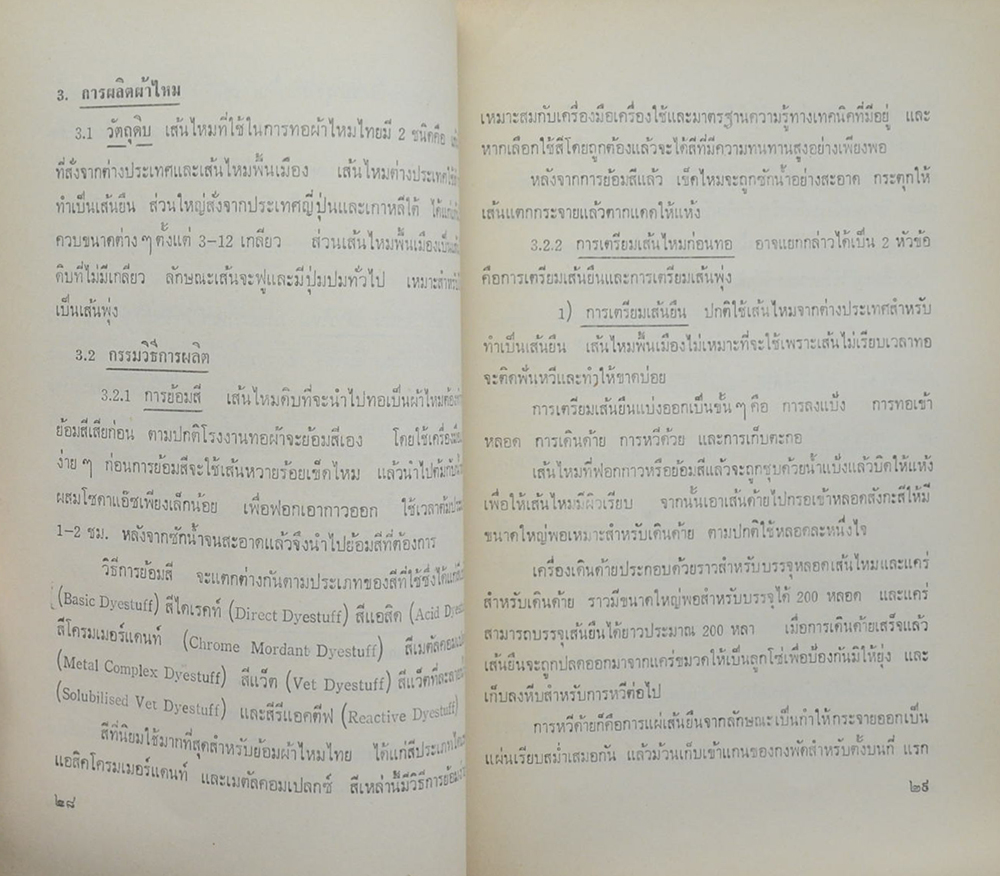 3. การผลิตผ้าไหม
3.1 วัตถุดิบ เส้นไหมที่ใช้ในการทอผ้าไหมไทยมี 2 ชนิดคือ
ที่สั่งจากต่างประเทศและเส้นไหมพื้นเมือง เส้นไหมต่างประเทศ
ทำเป็นเส้นยืน ส่วนใหญ่สั่งจากประเทศญี่ปุ่นและเกาหลีใต้
ควบขนาดต่าง ๆ ตั้งแต่ 3-12 เกลียว ส่วนเส้นไหมพื้นเมือง
ดิบที่ไม่มีเกลียว ลักษณะเส้นจะฟูและมีปุ่มปมทั่วไป
เป็นเส้นพุ่ง
3.2 กรรมวิธีการผลิต
3.2.1 การย้อมสี เส้นไหมดิบที่จะนำไปทอเป็นผ้าไหม
ย้อมสีเสียก่อน ตามปกติโรงงานทอผ้าจะย้อมสีเอง
ง่าย ๆ ก่อนการย้อมสีจะใช้เส้นหวายร้อยเข็ดไหม
ผสมโซดาแอ๊ซเพียงเล็กน้อย เพื่อฟอกเอากาวออก
1-2 ชม. หลังจากซักน้ำจนสะอาดแล้วจึงนำไปย้อมสีที่ต้องการ
วิธีการย้อมสี จะแตกต่างกันตามประเภทของสีที่ใช้
(Basic Dyestuff) สีไดเรคท์ (Direct Dyestuff) สีแอสิด (Acid
สีโครมเมอร์แดนท์ (Chrome Mordant Dyestuff)
(Metal Complex Dyestuff) สีแว็ต (Vet Dyestuff)
(Solubilised Vet Dyestuff) และสีรีแอคตีฟ (Reactive Dyestuff)
สีที่นิยมใช้มากที่สุดสำหรับย้อมผ้าไหมไทย ได้แก่สีประเภท
แอสิดโครมเมอร์แดนท์ และเมตัลคอมเปลกซ์ สีเหล่านี้มีวิธีการย้อม
๒๘
เหมาะสมกับเครื่องมือเครื่องใช้และมาตรฐานความรู้ทางเทคนิคที่มีอยู่ และ
หากเลือกใช้สีโดยถูกต้องแล้วจะได้สีที่มีความทนทานสูงอย่างเพียงพอ
หลังจากการย้อมสีแล้ว เข็ดไหมจะถูกซักน้ำอย่างสะอาด กระตุกให้
เส้นแตกกระจายแล้วตากแดดให้แห้ง
3.2.2 การเตรียมเส้นไหมก่อนทอ อาจแยกกล่าวได้เป็น 2 หัวข้อ
คือการเตรียมเส้นยืนและการเตรียมเส้นพุ่ง
1) การเตรียมเส้นยืน ปกติใช้เส้นไหมจากต่างประเทศสำหรับ
ทำเป็นเส้นยืน เส้นไหมพื้นเมืองไม่เหมาะที่จะใช้เพราะเส้นไม่เรียบเวลาทอ
จะติดฟันหวีและทำให้ขาดบ่อย
การเตรียมเส้นยืนแบ่งออกเป็นขั้น ๆ คือ การลงแป้ง การทอเข้า
หลอด การเดินด้าย การหวีด้วย และการเก็บตะกอ
เส้นไหมที่ฟอกกาวหรือย้อมสีแล้วจะถูกชุบด้วยน้ำแป้งแล้วบิดให้แห้ง
เพื่อให้เส้นไหมมีผิวเรียบ จากนั้นเอาเส้นด้ายไปกรอเข้าหลอดสังกะสีให้มี
ขนาดใหญ่พอเหมาะสำหรับเดินด้าย ตามปกติใช้หลอดละหนึ่งใจ
เครื่องเดินด้ายประกอบด้วยราวสำหรับบรรจุหลอดเส้นไหมและแคร่
สำหรับเดินด้าย ราวมีขนาดใหญ่พอสำหรับบรรจุได้ 200 หลอด และแคร่
สามารถบรรจุเส้นยืนได้ยาวประมาณ 200 หลา เมื่อการเดินด้ายเสร็จแล้ว
เส้นยืนจะถูกปลดออกมาจากแคร่ขมวดให้เป็นลูกโซ่เพื่อป้องกันมิให้ยุ่ง และ
เก็บลงหีบสำหรับการหวีต่อไป
การหวีด้ายก็คือการแผ่เส้นยืนจากลักษณะเป็นกำให้กระจายออกเป็น
แผ่นเรียบสม่ำเสมอกัน แล้วม้วนเก็บเข้าแกนของกงพัดสำหรับตั้งบนกี่ แรก
๒๙